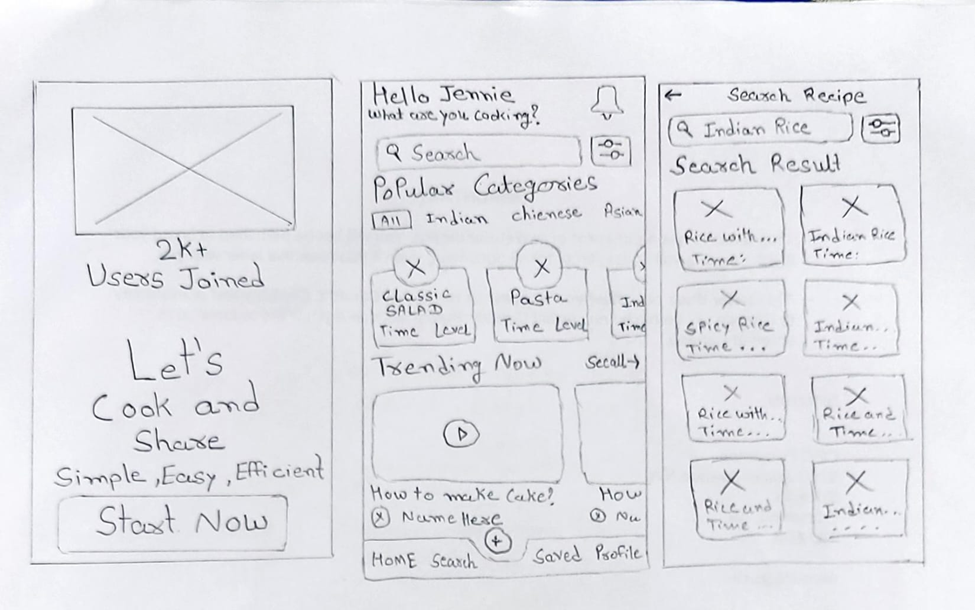 2K+
Users Joined
Let's
Cook and
Share
Simple, Easy, Efficient
Start Now
Hello Jennie
What are you cooking?
Search
Popular Categories
All Indian chienese Asian
Classic
SALAD
Time Level
Pasta
Time Level
Ind
Time
Trending Now Seeall→
How to make Cake?
Name Here
How
Na
HOME Search + Saved Profile
← Search Recipe
Indian Rice
Search Result
Rice with...
Time:
Indian Rice
Time:
Spicy Rice
Time ...
Indian..
Time..
Rice with..
Time...
Rice and
Time...
Rice and
Time ...
Indian...
....